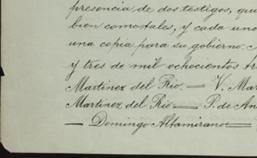 presencia de dos testigos, que
bien como tales, y cada uno
una copia para su gobierno.
y tres de mil ochocientos
Martinez del Rio — V. Mar
Martinez del Rio — P. de An
— Domingo Altamirano —